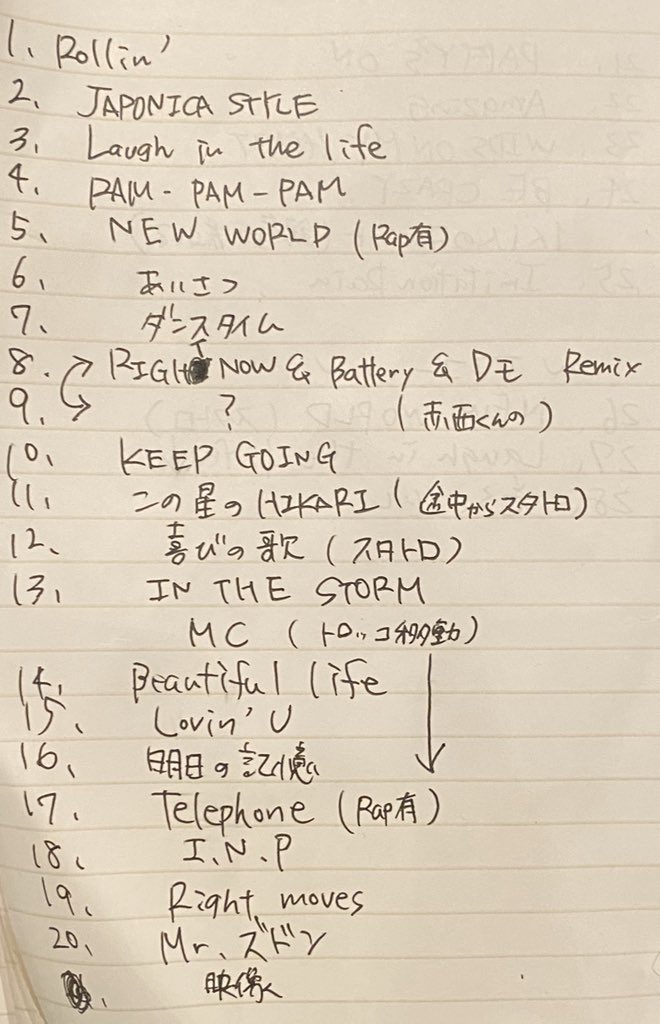 1. Rollin'
2. JAPONICA STYLE
3. Laugh in the life
4. PAM-PAM-PAM
5. NEW WORLD (Rap有)
6. あいさつ
7. ダンスタイム
8. RIGHT NOW & Battery & DE Remix
9. ? (赤西くんの)
10. KEEP GOING
11. この星のHIKARI (途中からスタトロ)
12. 喜びの歌 (スタトロ)
13. IN THE STORM
MC (トロッコ移動)
14. Beautiful life
15. Lovin' U
16. 明日の記憶
17. Telephone (Rap有)
18. I.N.P
19. Right moves
20. Mr.ズドン
映像